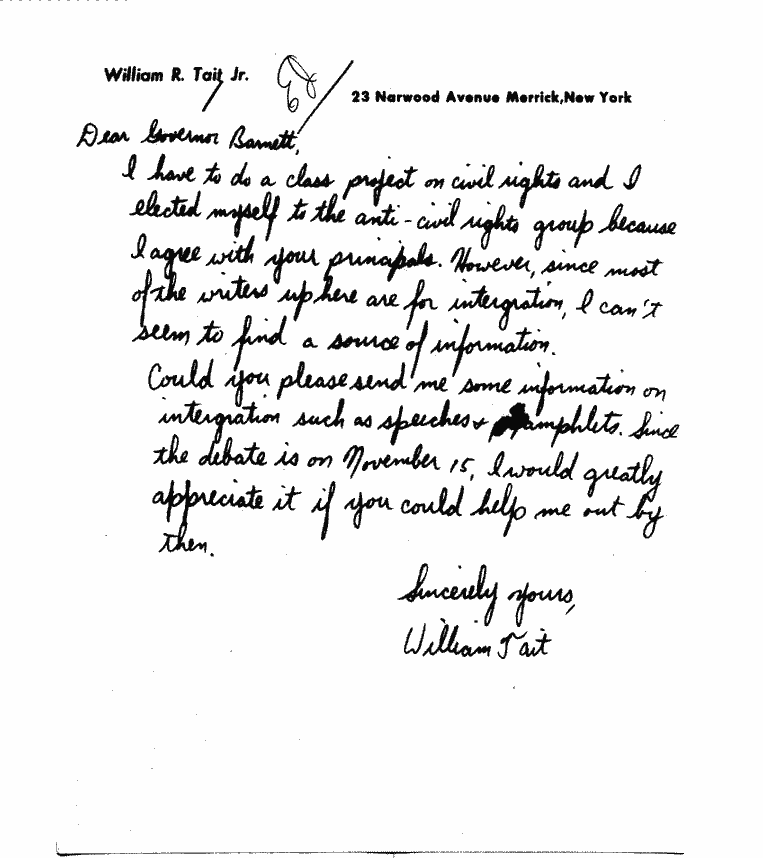 William R. Tait Jr.
23 Narwood Avenue Merrick, New York
Dear Governor Barnett,
I have to do a class project on civil rights and I
elected myself to the anti-civil rights group because
I agree with your principals. However, since most
of the writers up here are for intergration, I can't
seem to find a source of information.
Could you please send me some information on
intergration such as speeches & pamphlets. Since
the debate is on November 15, I would greatly
appreciate it if you could help me out by
then.
Sincerely yours,
William Tait